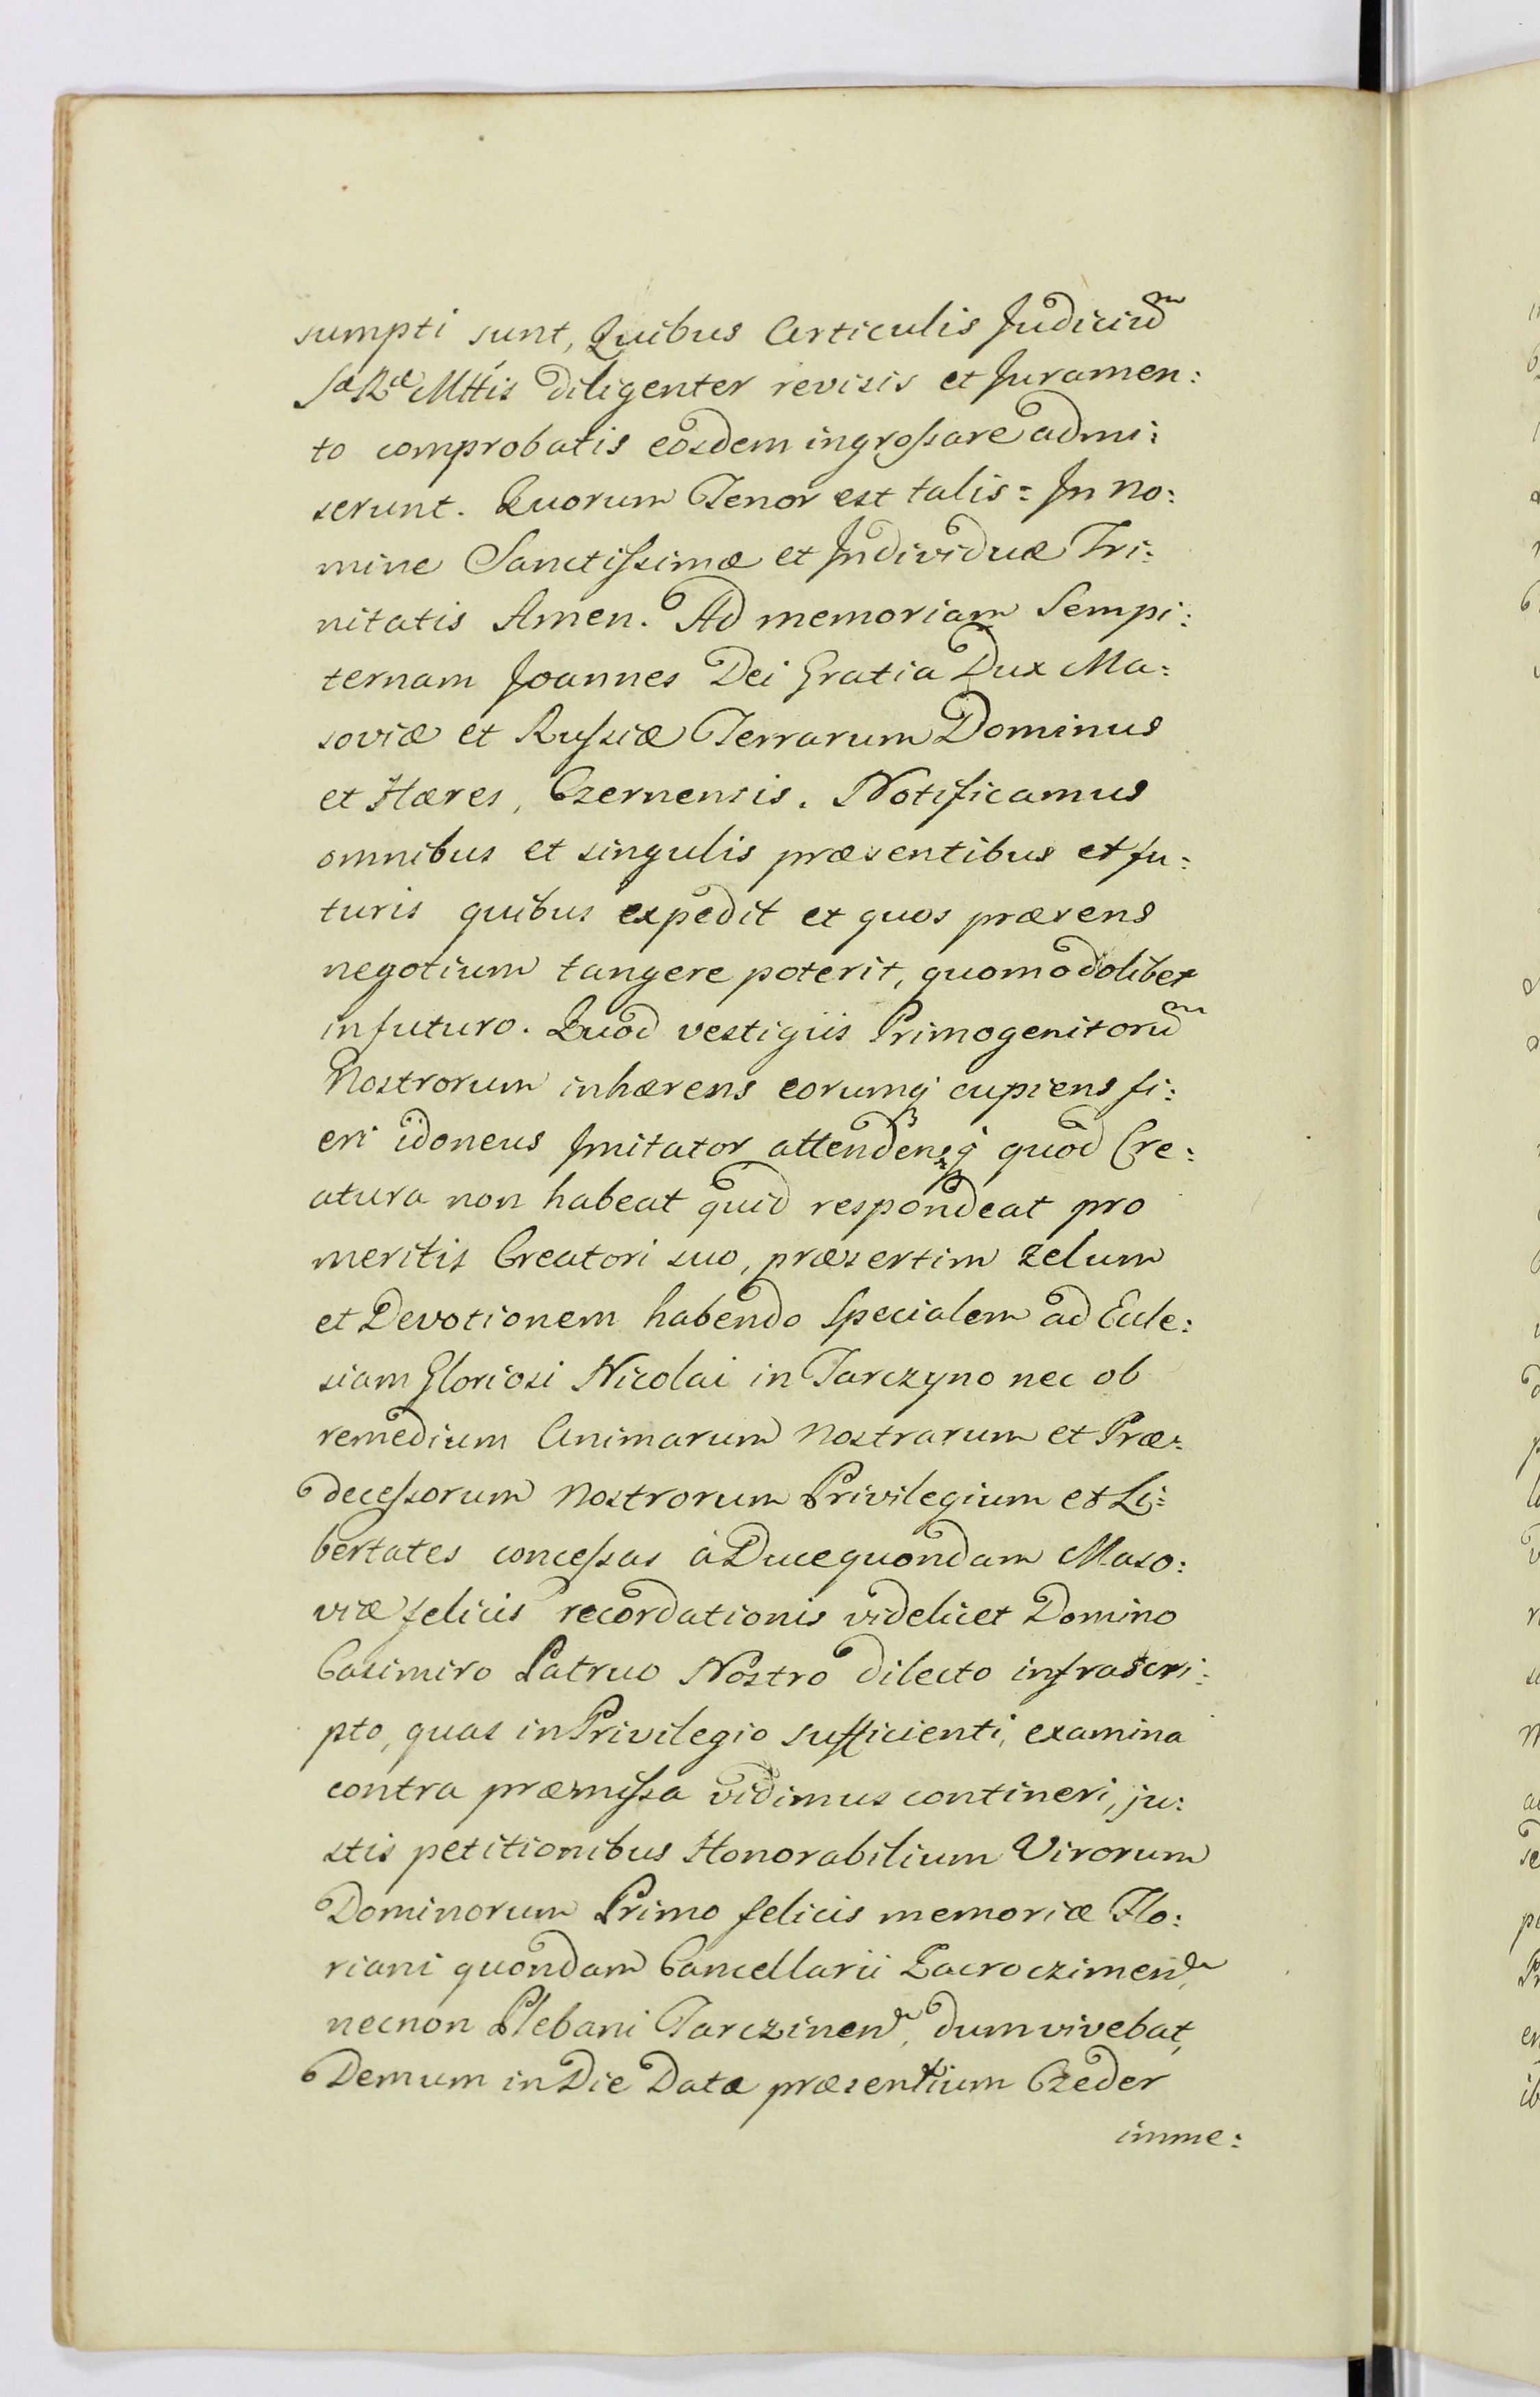 sumpti sunt, Quibus Articulis Judiciũm
SæRæ Mttis diligenter revisis et Juramen:
to comprobatis eosdem ingrossare admi:
serunt. Quorum Tenor est talis = In no:
mine Sanctissimæ et Individuæ Tri:
nitatis Amen. Ad memoriam Sempi:
ternam Joannes Dei Gratia Dux Ma:
soviæ et Russiæ Terrarum Dominus
et Hæres, Czernensis. Notificamus
omnibus et singulis præsentibus et fu:
turis quibus expedit et quos præsens
negotium tangere poterit, quomodolibet
in futuro. Quod vestigiis Primogenitorũm
Nostrorum inhærens eorumq cupiens fi:
eri idoneus Imitator attendensq quod Cre:
atura non habeat quid respondeat pro
meritis Creatori suo, præsertim zelum
et Devotionem habendo Specialem ad Eccle:
siam Gloriosi Nicolai in Tarczyno nec ob
remedium Animarum Nostrarum et Præ:
decessorum Nostrorum Privilegium et Li:
bertates concessas à Duce quondam Maso:
viæ felicis recordationis videlicet Domino
Casimiro Patruo Nostro dilecto infrascri:
pto, quas in Privilegio sufficienti, examina
contra præmissa vidimus contineri, ju:
stis petitionibus Honorabilium Virorum
Dominorum Primo felicis memoriæ Flo:
riani quondam Cancellarii Zacroczimen,
necnon Plebani Tarczinen, dum vivebat,
Demum in Die Data præsentium Czeder
imme: